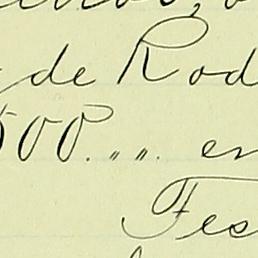 de Rod
500.„„. en
Fes